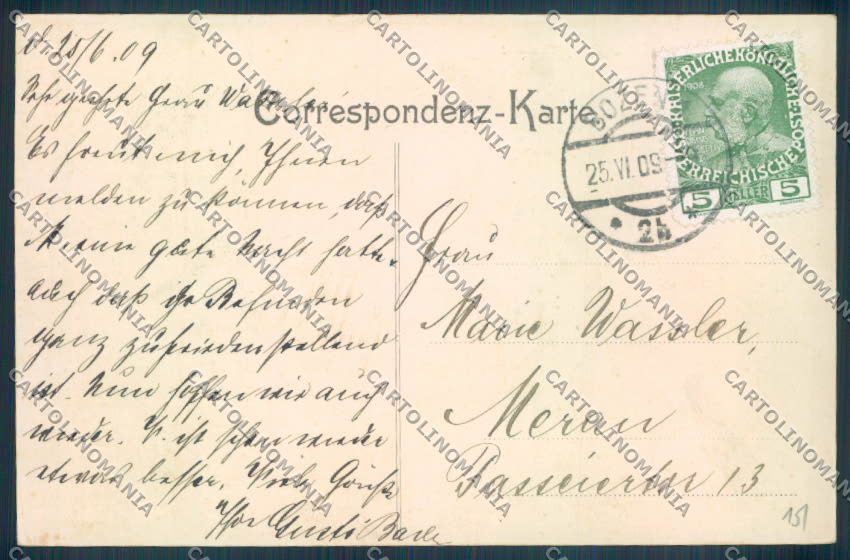 25/6.09
Sehr geehrte Frau Wassler!
Correspondenz-Karte.
Es freut mich, Ihnen
melden zu können, daß
M. eine gute Nacht hatte,
auch daß Befinden
ganz zufriedenstellend
ist. Nun hoffen wir auch
wieder. ist schon wieder
etwas besser. Viele Grüße
Ihre Gusti
Frau
Marie Wassler,
Meran
Passeierstr 13
BOZEN
25.VI.09
* 2b *
1908
KAISERLICHE KÖNIGLICHE
ÖSTERREICHISCHE POST
5 HELLER 5
15/
CARTOLINOMANIA